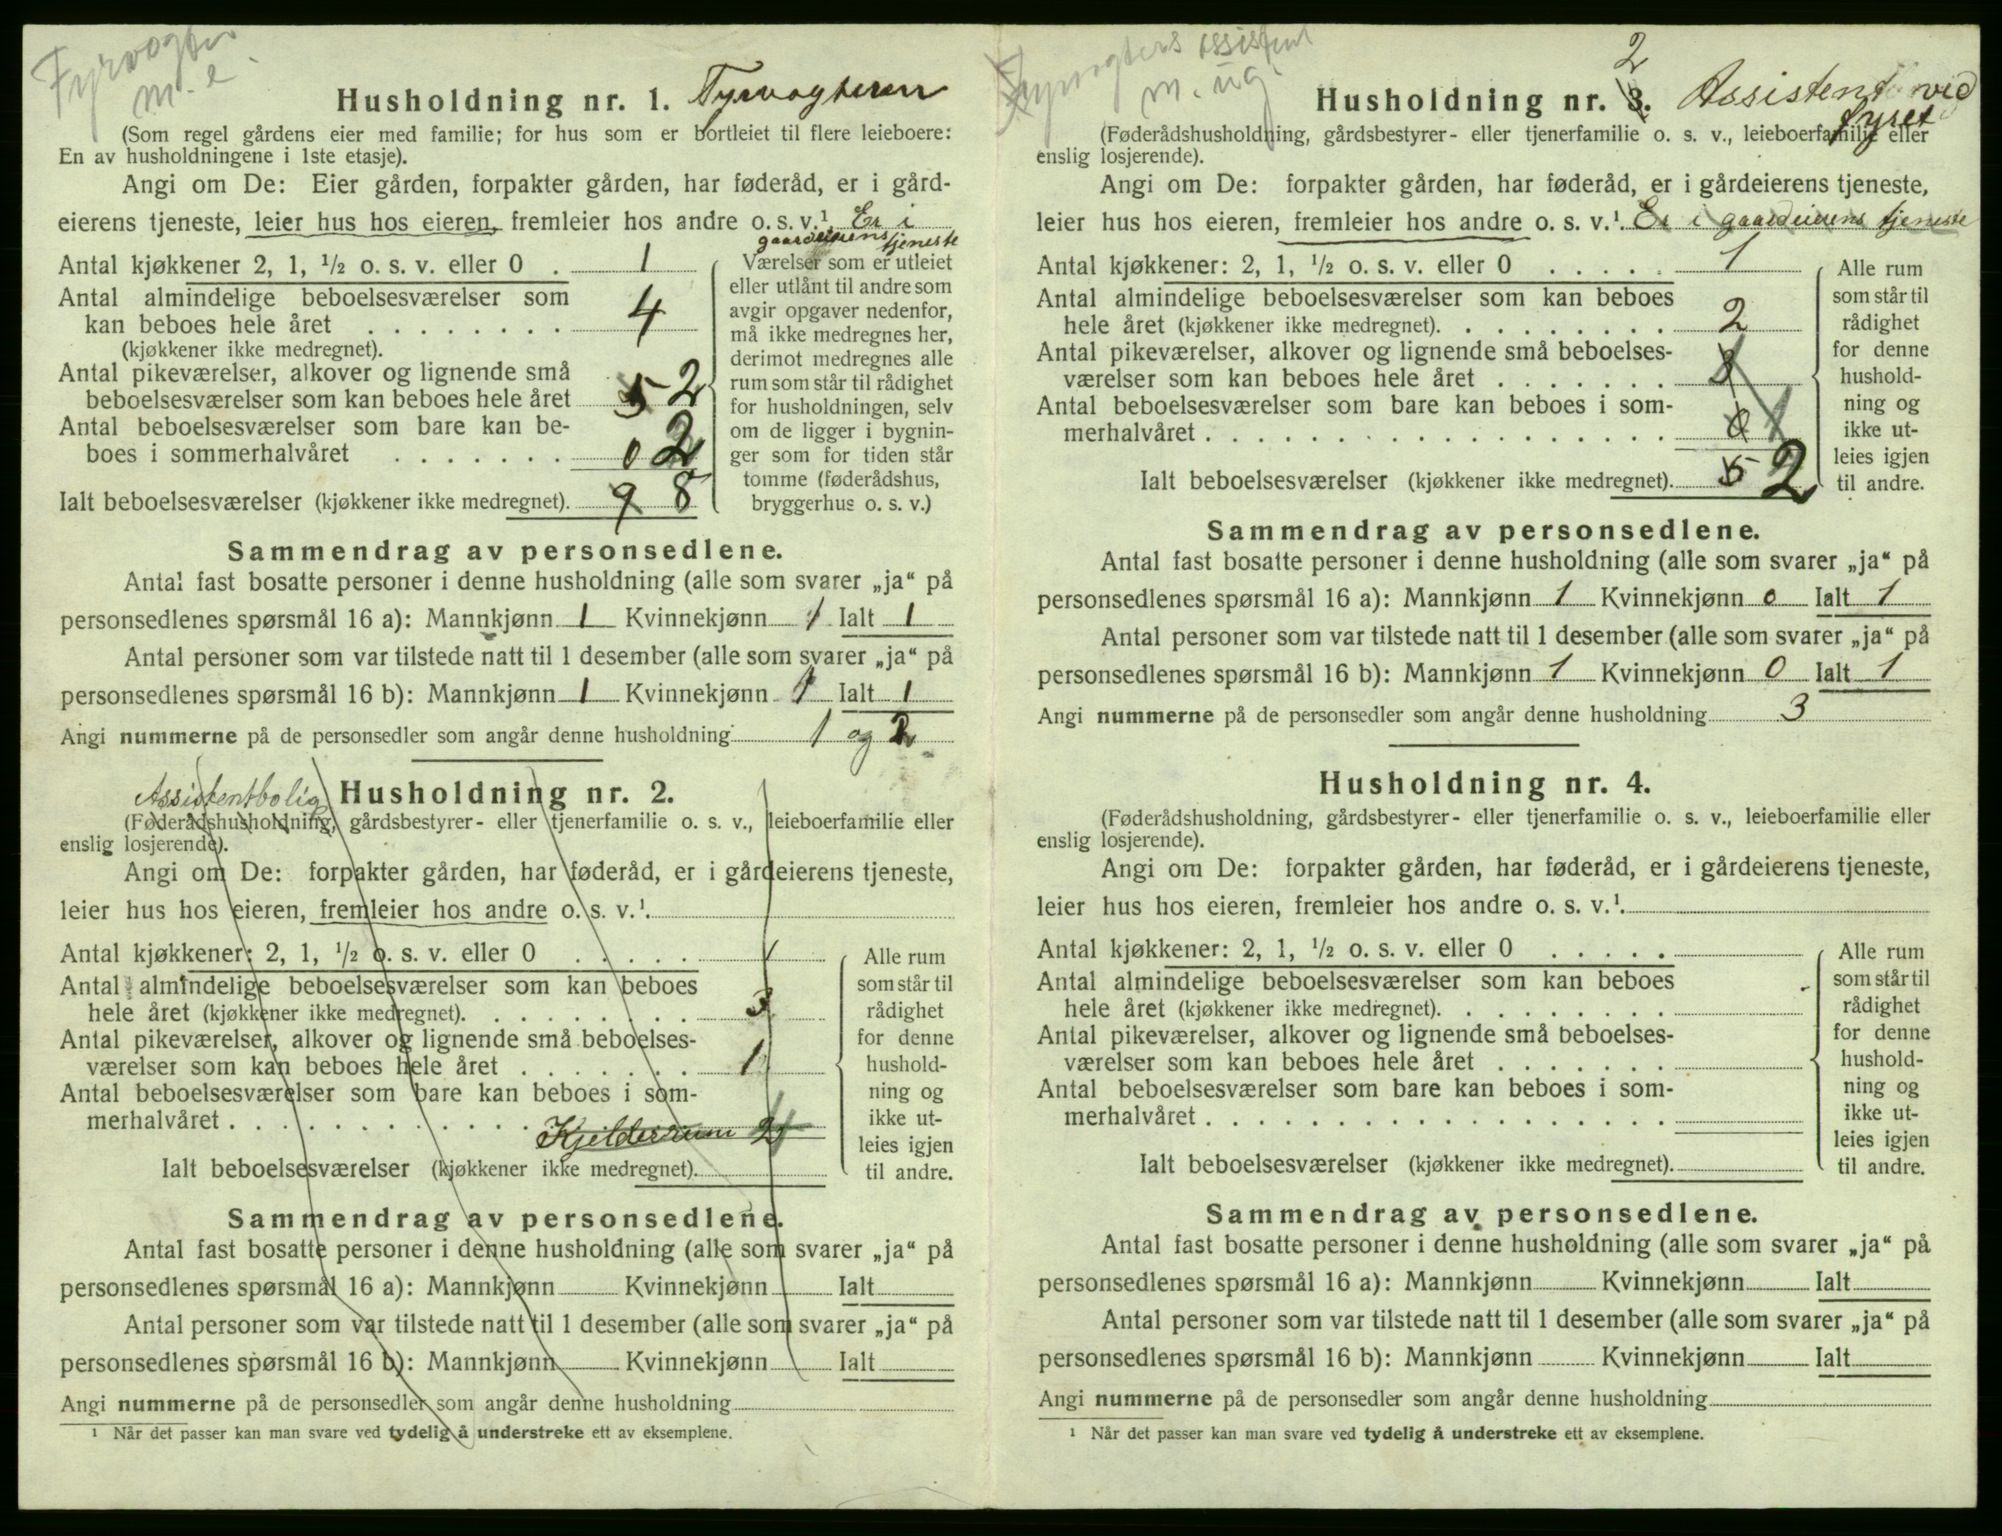 Fyrvogter
m. e.
Husholdning nr. 1. Fyrvogteren
(Som regel gårdens eier med familie; for hus som er bortleiet til flere leieboere:
En av husholdningene i 1ste etasje).
Angi om De: Eier gården, forpakter gården, har føderåd, er i gård-
eierens tjeneste, leier hus hos eieren, fremleier hos andre o. s. v.¹ Er i
gaardeierens tjeneste
Antal kjøkkener 2, 1, ½ o. s. v. eller 0 . 1
Antal almindelige beboelsesværelser som
kan beboes hele året . . . . . . . . 4
(kjøkkener ikke medregnet).
Antal pikeværelser, alkover og lignende små
beboelsesværelser som kan beboes hele året 5 2
Antal beboelsesværelser som bare kan be-
boes i sommerhalvåret . . . . . . . 0 2
Ialt beboelsesværelser (kjøkkener ikke medregnet). 9 8
Værelser som er utleiet
eller utlånt til andre som
avgir opgaver nedenfor,
må ikke medregnes her,
derimot medregnes alle
rum som står til rådighet
for husholdningen, selv
om de ligger i bygnin-
ger som for tiden står
tomme (føderådshus,
bryggerhus o. s. v.)
Sammendrag av personsedlene.
Antal fast bosatte personer i denne husholdning (alle som svarer „ja“ på
personsedlenes spørsmål 16 a): Mannkjønn 1 Kvinnekjønn 1 Ialt 1
Antal personer som var tilstede natt til 1 desember (alle som svarer „ja“ på
personsedlenes spørsmål 16 b): Mannkjønn 1 Kvinnekjønn 1 Ialt 1
Angi nummerne på de personsedler som angår denne husholdning 1 og 2
Assistentbolig Husholdning nr. 2.
(Føderådshusholdning, gårdsbestyrer- eller tjenerfamilie o. s. v., leieboerfamilie eller
enslig losjerende).
Angi om De: forpakter gården, har føderåd, er i gårdeierens tjeneste,
leier hus hos eieren, fremleier hos andre o. s. v.¹.
Antal kjøkkener: 2, 1, ½ o. s. v. eller 0 . . . . . 1
Antal almindelige beboelsesværelser som kan beboes
hele året (kjøkkener ikke medregnet). . . . . . . . . 3
Antal pikeværelser, alkover og lignende små beboelses-
værelser som kan beboes hele året . . . . . . . 1
Antal beboelsesværelser som bare kan beboes i som-
merhalvåret . . . . . . . . . . . . Kjelderrum 2
Ialt beboelsesværelser (kjøkkener ikke medregnet).
Alle rum
som står til
rådighet
for denne
hushold-
ning og
ikke ut-
leies igjen
til andre.
Sammendrag av personsedlene.
Antal fast bosatte personer i denne husholdning (alle som svarer „ja“ på
personsedlenes spørsmål 16 a): Mannkjønn Kvinnekjønn Ialt
Antal personer som var tilstede natt til 1 desember (alle som svarer „ja“ på
personsedlenes spørsmål 16 b): Mannkjønn Kvinnekjønn Ialt
Angi nummerne på de personsedler som angår denne husholdning
¹ Når det passer kan man svare ved tydelig å understreke ett av eksemplene.
Fyrvogters assistent
m. ug.
Husholdning nr. 3. 2 Assistent ved
fyret
(Føderådshusholdning, gårdsbestyrer- eller tjenerfamilie o. s. v., leieboerfamilie eller
enslig losjerende).
Angi om De: forpakter gården, har føderåd, er i gårdeierens tjeneste,
leier hus hos eieren, fremleier hos andre o. s. v.¹. Er i gaardeierens tjeneste
Antal kjøkkener: 2, 1, ½ o. s. v. eller 0 . . . . . 1
Antal almindelige beboelsesværelser som kan beboes
hele året (kjøkkener ikke medregnet). . . . . . . . . 2
Antal pikeværelser, alkover og lignende små beboelses-
værelser som kan beboes hele året . . . . . . . 3
Antal beboelsesværelser som bare kan beboes i som-
merhalvåret . . . . . . . . . . . . . . . . . . 0
Ialt beboelsesværelser (kjøkkener ikke medregnet). 5 2
Alle rum
som står til
rådighet
for denne
hushold-
ning og
ikke ut-
leies igjen
til andre.
Sammendrag av personsedlene.
Antal fast bosatte personer i denne husholdning (alle som svarer „ja“ på
personsedlenes spørsmål 16 a): Mannkjønn 1 Kvinnekjønn 0 Ialt 1
Antal personer som var tilstede natt til 1 desember (alle som svarer „ja“ på
personsedlenes spørsmål 16 b): Mannkjønn 1 Kvinnekjønn 0 Ialt 1
Angi nummerne på de personsedler som angår denne husholdning 3
Husholdning nr. 4.
(Føderådshusholdning, gårdsbestyrer- eller tjenerfamilie o. s. v., leieboerfamilie eller
enslig losjerende).
Angi om De: forpakter gården, har føderåd, er i gårdeierens tjeneste,
leier hus hos eieren, fremleier hos andre o. s. v.¹.
Antal kjøkkener: 2, 1, ½ o. s. v. eller 0 . . . . .
Antal almindelige beboelsesværelser som kan beboes
hele året (kjøkkener ikke medregnet). . . . . . . . .
Antal pikeværelser, alkover og lignende små beboelses-
værelser som kan beboes hele året . . . . . . .
Antal beboelsesværelser som bare kan beboes i som-
merhalvåret . . . . . . . . . . . . . . . . . .
Ialt beboelsesværelser (kjøkkener ikke medregnet).
Alle rum
som står til
rådighet
for denne
hushold-
ning og
ikke ut-
leies igjen
til andre.
Sammendrag av personsedlene.
Antal fast bosatte personer i denne husholdning (alle som svarer „ja“ på
personsedlenes spørsmål 16 a): Mannkjønn Kvinnekjønn Ialt
Antal personer som var tilstede natt til 1 desember (alle som svarer „ja“ på
personsedlenes spørsmål 16 b): Mannkjønn Kvinnekjønn Ialt
Angi nummerne på de personsedler som angår denne husholdning
¹ Når det passer kan man svare ved tydelig å understreke ett av eksemplene.